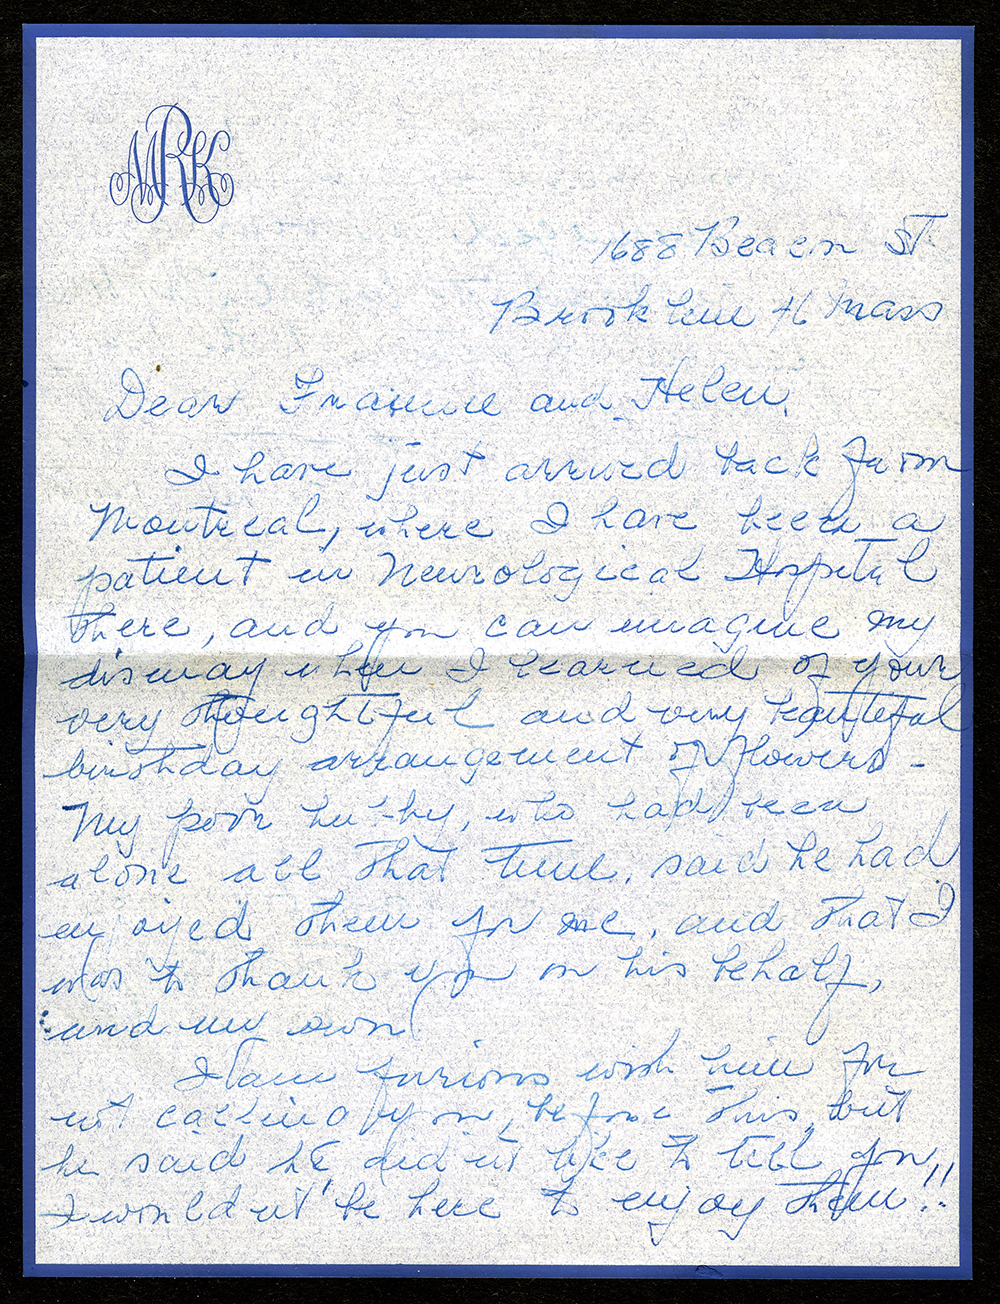 MRK
1688 Beacon St
Brookline 46 Mass
Dear Francine and Helen,
I have just arrived back from
Montreal, where I have been a
patient in Neurological Hospital
there, and you can imagine my
dismay when I learned of your
very thoughtful and very beautiful
birthday arrangement of flowers -
My poor hubby, who had been
alone all that time, said he had
enjoyed them for me, and that I
was to thank you on his behalf,
and my own
I am furious with him for
not calling you, before this, but
he said he didn't like to tell you
I wouldn't be here to enjoy them!!